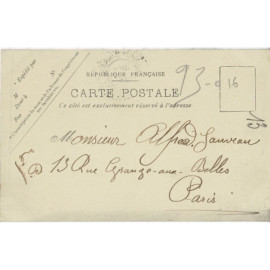 RÉPUBLIQUE FRANÇAISE
CARTE POSTALE
Ce côté est exclusivement réservé à l'adresse
93-
16
Monsieur Alfred Janveau
13 Rue Grange-aux-Belles
Paris
13